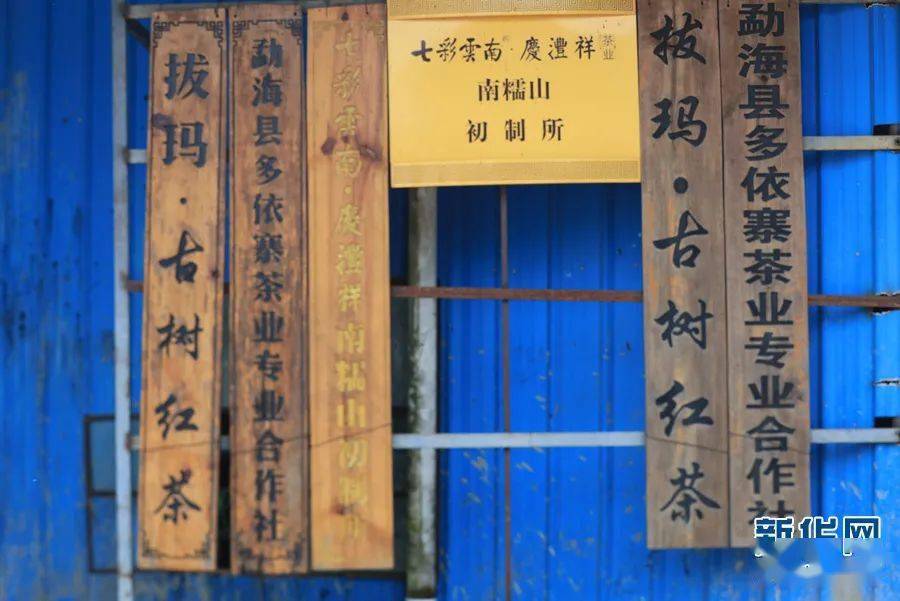 拔玛·古树红茶
勐海县多依寨茶业专业合作社
七彩雲南·慶灃祥南糯山初制所
七彩雲南·慶灃祥茶业
南糯山
初制所
拔玛·古树红茶
勐海县多依寨茶业专业合作社
新华网